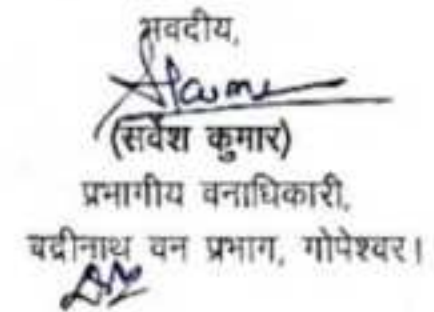 भवदीय,
(सर्वेश कुमार)
प्रभागीय वनाधिकारी,
बद्रीनाथ वन प्रभाग, गोपेश्वर।